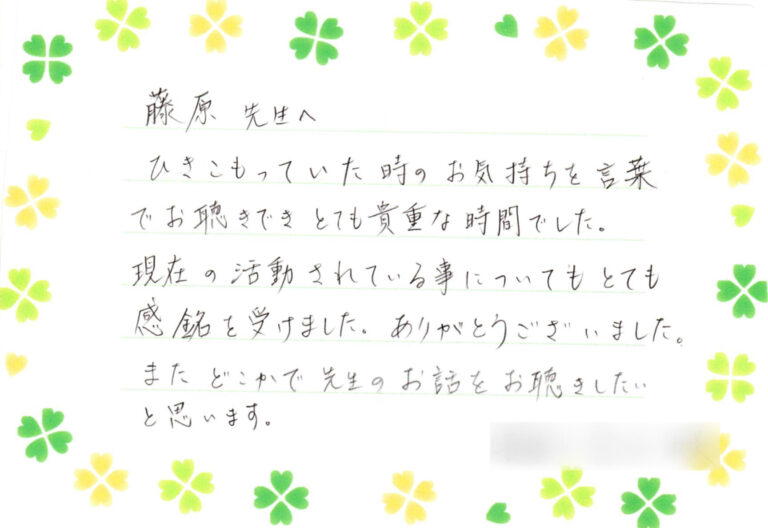 藤原 先生へ
ひきこもっていた時のお気持ちを言葉
でお聴きでき とても貴重な時間でした。
現在の活動されている事についてもとても
感銘を受けました。ありがとうございました。
またどこかで先生のお話をお聴きしたい
と思います。